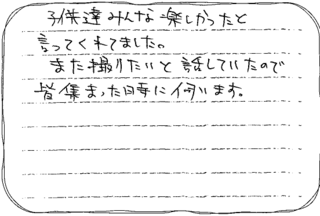 子供達みんな楽しかったと
言ってくれてました。
また撮りたいと話していたので
皆集まった日時に伺います。